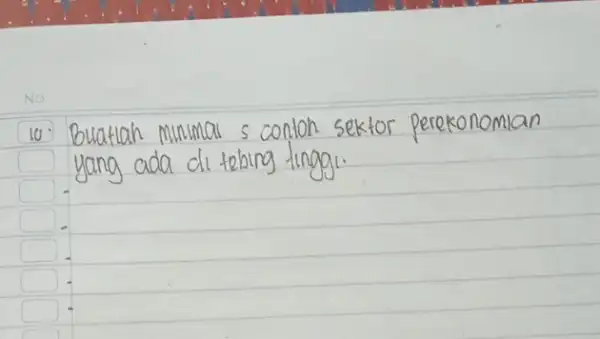 No
10. Buatlah minimal 5 contoh sektor perekonomian
yang ada di tebing tinggi.